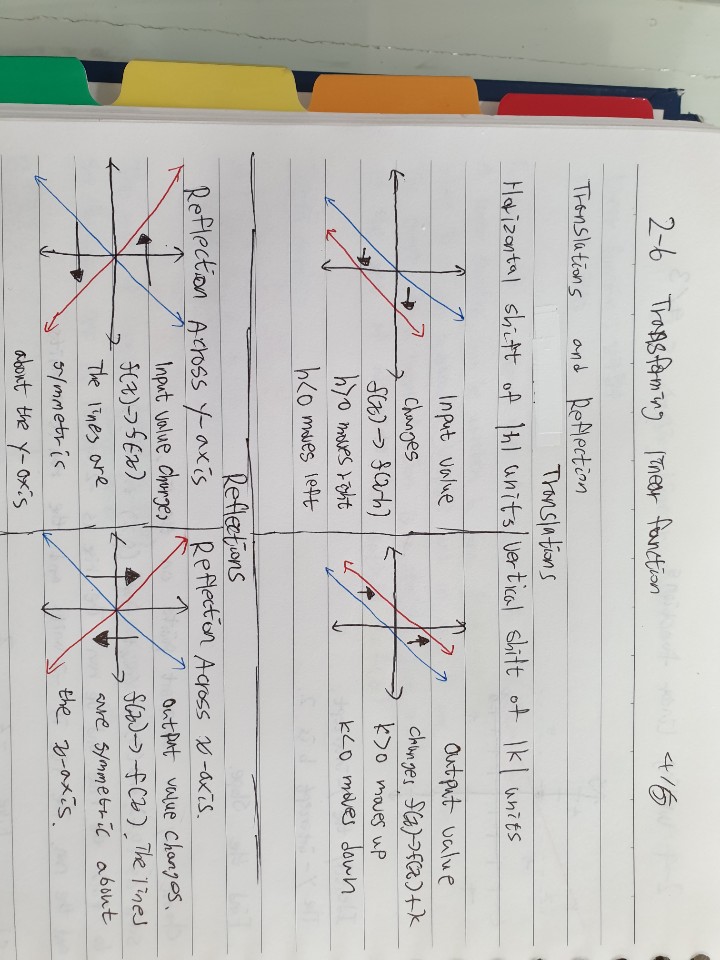 2-6 Transforming linear function 4/6
Translations and Reflection
Translations
Horizontal shift of |h| units
Input value
changes
f(x)→f(x-h)
h>0 moves right
h<0 moves left
Vertical shift of |k| units
output value
changes. f(x)→f(x)+k
k>0 moves up
k<0 moves down
Reflections
Reflection Across y-axis
Input value changes
f(x)→f(-x)
The lines are
symmetric
about the y-axis
Reflection Across x-axis.
output value changes.
f(x)→-f(x). The lines
are symmetric about
the x-axis.